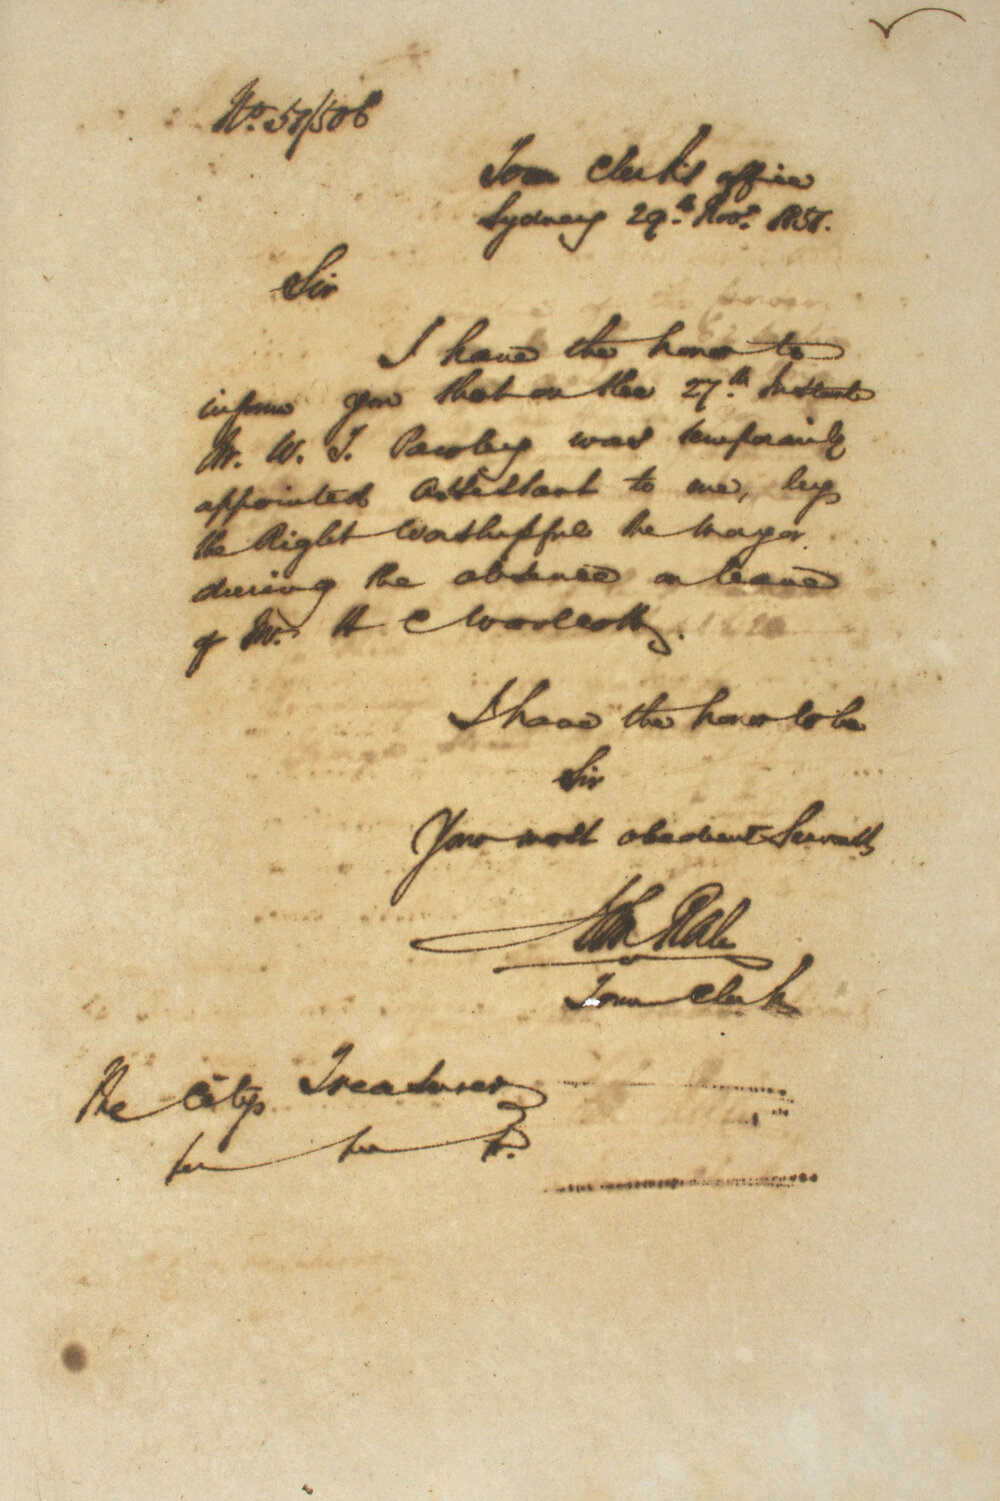 No. 57/506
Town Clerk's Office
Sydney 29th Novr. 1857.
Sir
I have the honor to
inform you that on the 27th Instant
Mr. W. J. Pawley was temporarily
appointed Assistant to me, by
the Right Worshipful the Mayor
during the absence on leave
of Mr. H C Woolcott.
I have the honor to be
Sir
Your most obedient Servant
John Rae
Town Clerk
The City Treasurer